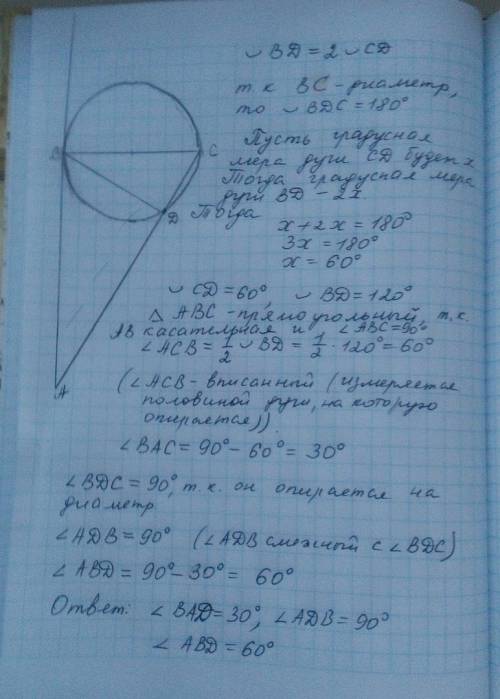 ◡ BD = 2 ◡ CD
т.к BC - диаметр,
то ◡ BDC = 180°
Пусть градусная
мера дуги CD будет x
Тогда градусная мера
дуги BD - 2x.
Тогда
x + 2x = 180°
3x = 180°
x = 60°
B
C
D
A
◡ CD = 60°, ◡ BD = 120°
△ ABC - прямоугольный, т.к.
AB касательная и ∠ABC = 90°
∠ACB = 1/2 ◡ BD = 1/2 · 120° = 60°
(∠ACB - вписанный (измеряется
половиной дуги, на которую
опирается)).
∠BAC = 90° - 60° = 30°
∠BDC = 90°, т.к. он опирается на
диаметр
∠ADB = 90° (∠ADB смежный с ∠BDC)
∠ABD = 90° - 30° = 60°
Ответ: ∠BAD = 30°, ∠ADB = 90°
∠ABD = 60°